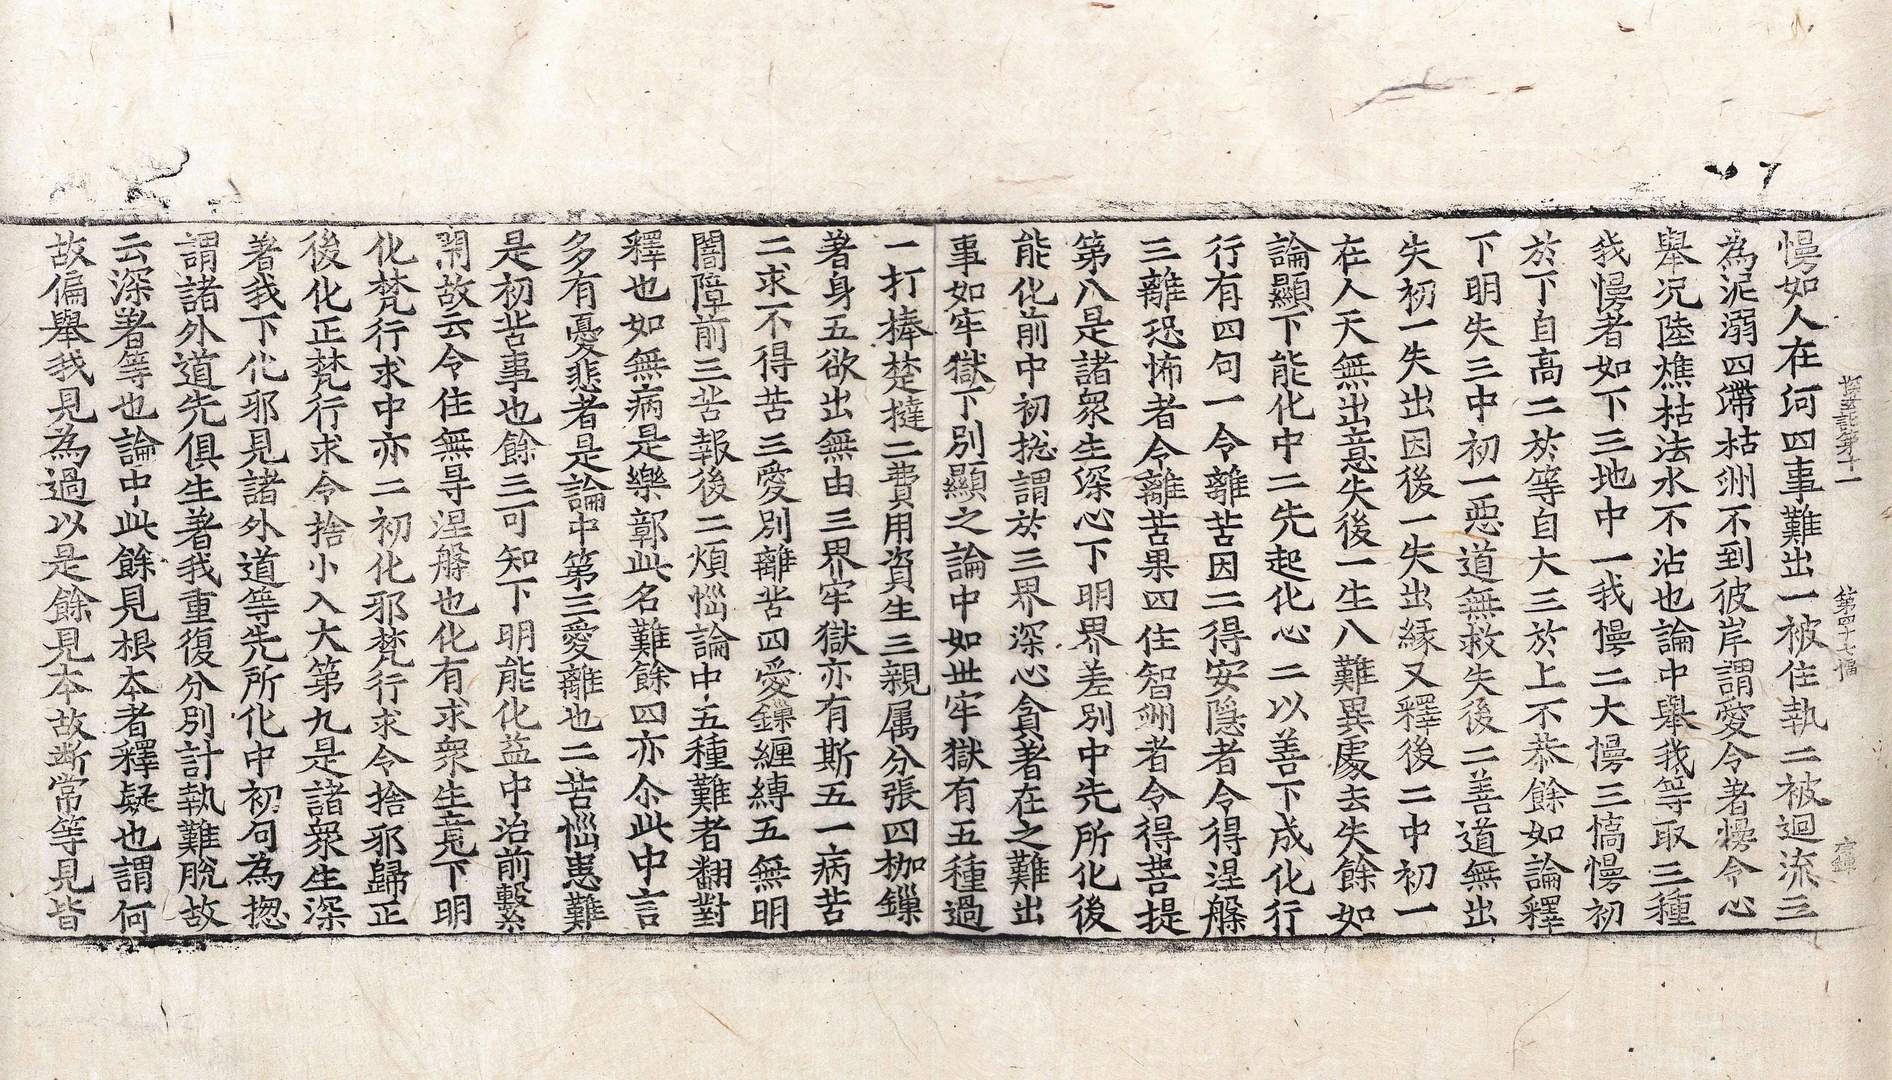 慢如人在河四事難出一被住執二被迴流三
為泥溺四滯枯洲不到彼岸謂愛令著慢令心
舉况陸燋枯法水不沾也論中舉我等取三種
我慢者如下三地中一我慢二大慢三憍慢初
於下自高二於等自大三於上不恭餘如論釋
下明失三中初一惡道無救失後二善道無出
失初一失出因後一失出緣又釋後二中初一
在人天無出意失後一生八難異處去失餘如
論顯下能化中二先起化心二以善下成化行
行有四句一令離苦因二得安隱者令得涅槃
三離恐怖者令離苦果四住智洲者令得菩提
第八是諸衆生深心下明界差別中先所化後
能化前中初揔謂於三界深心貪著在之難出
事如牢獄下別顯之論中如世牢獄有五種過
一打捧楚撻二費用資生三親属分張四枷鏁
著身五欲出無由三界牢獄亦有斯五一病苦
二求不得苦三愛別離苦四愛鏁纏縛五無明
闇障前三苦報後二煩惱論中五種難者翻對
釋也如無病是樂鄣此名難餘四亦尒此中言
多有憂悲者是論中第三愛離也二苦惱患難
是初苦事也餘三可知下明能化益中治前繫
閇故云令住無㝵涅槃也化有求衆生竟下明
化梵行求中亦二初化邪梵行求令捨邪歸正
後化正梵行求令捨小入大第九是諸衆生深
著我下化邪見諸外道等先所化中初句為揔
謂諸外道先俱生著我重復分別計執難脫故
云深著等也論中此餘見根本者釋疑也謂何
故偏舉我見為過以是餘見本故断常等見皆
探玄記第十一 第四十七幅